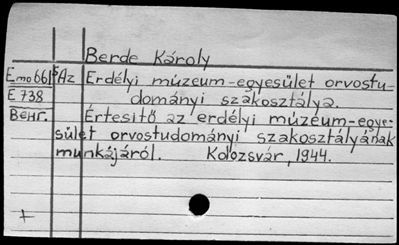 Berde Károly
Emo66 Az Erdélyi múzeum-egyesület orvostu-
E 738 dományi szakosztálya.
Венг. Értesítő az erdélyi múzeum-egye-
sület orvostudományi szakosztályának
munkájáról. Kolozsvár, 1944.
+